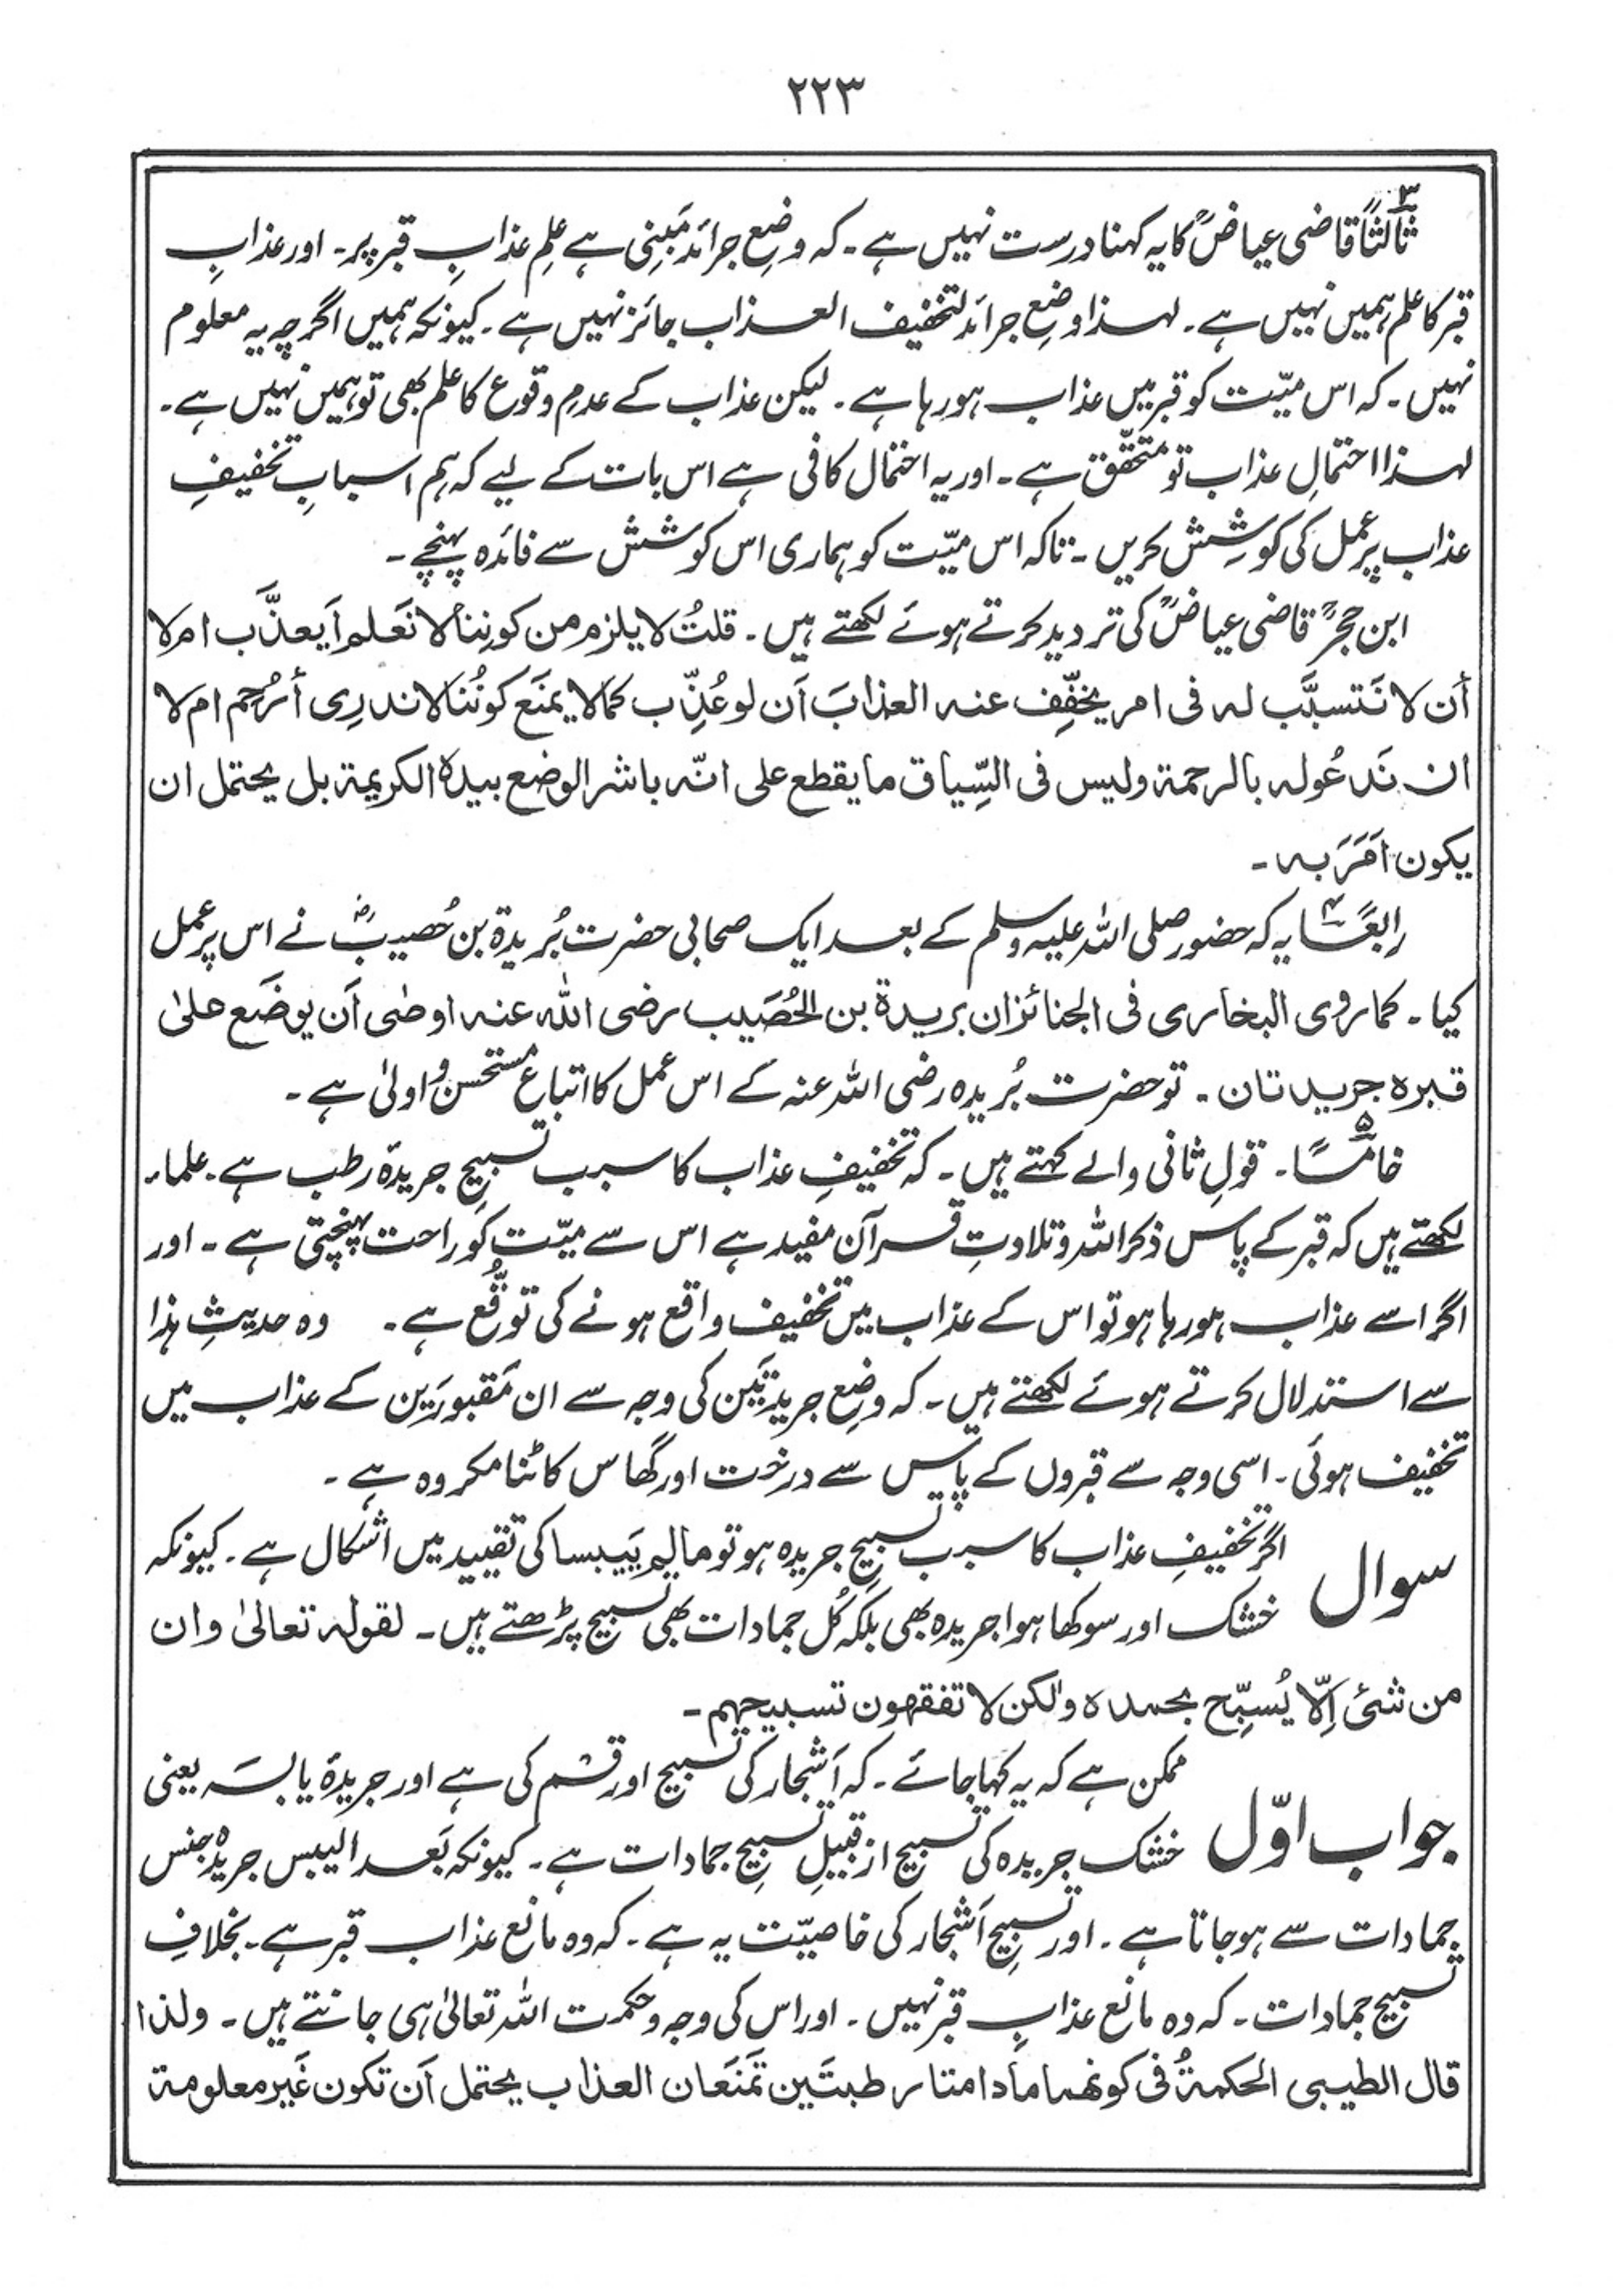 ۲۲۳
ثالثًا قاضی عیاضؒ کا یہ کہنا درست نہیں ہے۔ کہ وضعِ جرائد مَبنِی ہے علِم عذابِ قبر پر۔ اور عذابِ
قبر کا علم ہمیں نہیں ہے۔ لہذا وضعِ جرائد لتخفیف العذاب جائز نہیں ہے۔ کیونکہ ہمیں اگرچہ یہ معلوم
نہیں۔ کہ اس میّت کو قبر میں عذاب ہو رہا ہے۔ لیکن عذاب کے عدمِ وقوع کا علم بھی تو ہمیں نہیں ہے۔
لہذا احتمالِ عذاب تو مُتحقّق ہے۔ اور یہ احتمال کافی ہے اس بات کے لیے کہ ہم اسبابِ تخفیفِ
عذاب پر عمل کی کوشِش کریں۔ تاکہ اس میّت کو ہماری اس کوشش سے فائدہ پہنچے۔
ابن حجرؒ قاضی عیاضؒ کی تردید کرتے ہوئے لکھتے ہیں۔ قلتُ لا یلزم من کونِنا لا نَعَلم اَیعذَّب ام لا
أن لا نَتسبَّب لہ فی امر یخفِّف عنہ العذابَ اَن لو عُذِّب کما لا یمنَع کونُنا لا ندرِی أ رُحِم ام لا
ان نَدعُولہ بالرحمۃ ولیس فی السِّیاق ما یقطع علی انّہ باشر الوضع بیدہ الکریمۃ بل یحتمل ان
یکون اَمَرَ بہ۔
رابعًا یہ کہ حضور صلی اللہ علیہ وسلم کے بعد ایک صحابی حضرت بُریدۃ بن حُصیبؓ نے اس پر عمل
کیا۔ کما روی البخاری فی الجنائز ان بریدۃ بن الحُصَیب رضی اللہ عنہ اوصٰی اَن یوضَع علیٰ
قبرہ جریدتان۔ تو حضرت بُریدہ رضی اللہ عنہ کے اس عمل کا اتباع مستحسن و اولیٰ ہے۔
خامسًا۔ قولِ ثانی والے کہتے ہیں۔ کہ تخفیفِ عذاب کا سبب تسبیحِ جریدۂ رطب ہے۔ علماء
لکھتے ہیں کہ قبر کے پاس ذکر اللہ و تلاوتِ قرآن مفید ہے اس سے میّت کو راحت پہنچتی ہے۔ اور
اگر اسے عذاب ہو رہا ہو تو اس کے عذاب میں تخفیف واقع ہونے کی توقُّع ہے۔ وہ حدیثِ ہٰذا
سے استدلال کرتے ہوئے لکھتے ہیں۔ کہ وضعِ جریدتَین کی وجہ سے ان مَقبورَین کے عذاب میں
تخفیف ہوئی۔ اسی وجہ سے قبروں کے پاس سے درخت اور گھاس کاٹنا مکروہ ہے۔
سوال اگر تخفیفِ عذاب کا سبب تسبیحِ جریدہ ہو تو مالم یَیبسا کی تقیید میں اشکال ہے۔ کیونکہ
خشک اور سوکھا ہوا جریدہ بھی بلکہ کُل جمادات بھی تسبیح پڑھتے ہیں۔ لقولہ تعالیٰ وان
من شئ اِلّا یُسبِّح بحمدہ ولٰکن لا تفقھون تسبیحھم۔
جواب اوّل ممکن ہے کہ یہ کہا جائے۔ کہ اَشجار کی تسبیح اور قسم کی ہے اور جریدۂ یابسَہ یعنی
خشک جریدہ کی تسبیح از قبیلِ تسبیحِ جمادات ہے۔ کیونکہ بَعد الیبس جریدہ جنس
جمادات سے ہو جاتا ہے۔ اور تسبیحِ اَشجار کی خاصیّت یہ ہے۔ کہ وہ مانع عذاب قبر ہے۔ بخلافِ
تسبیح جمادات۔ کہ وہ مانع عذابِ قبر نہیں۔ اور اس کی وجہ و حکمت اللہ تعالیٰ ہی جانتے ہیں۔ ولذا
قال الطیبی الحکمۃُ فی کونھما مادامتا رطبتَین تَمنَعَان العذاب یحتمل اَن تکون غَیر معلومۃ